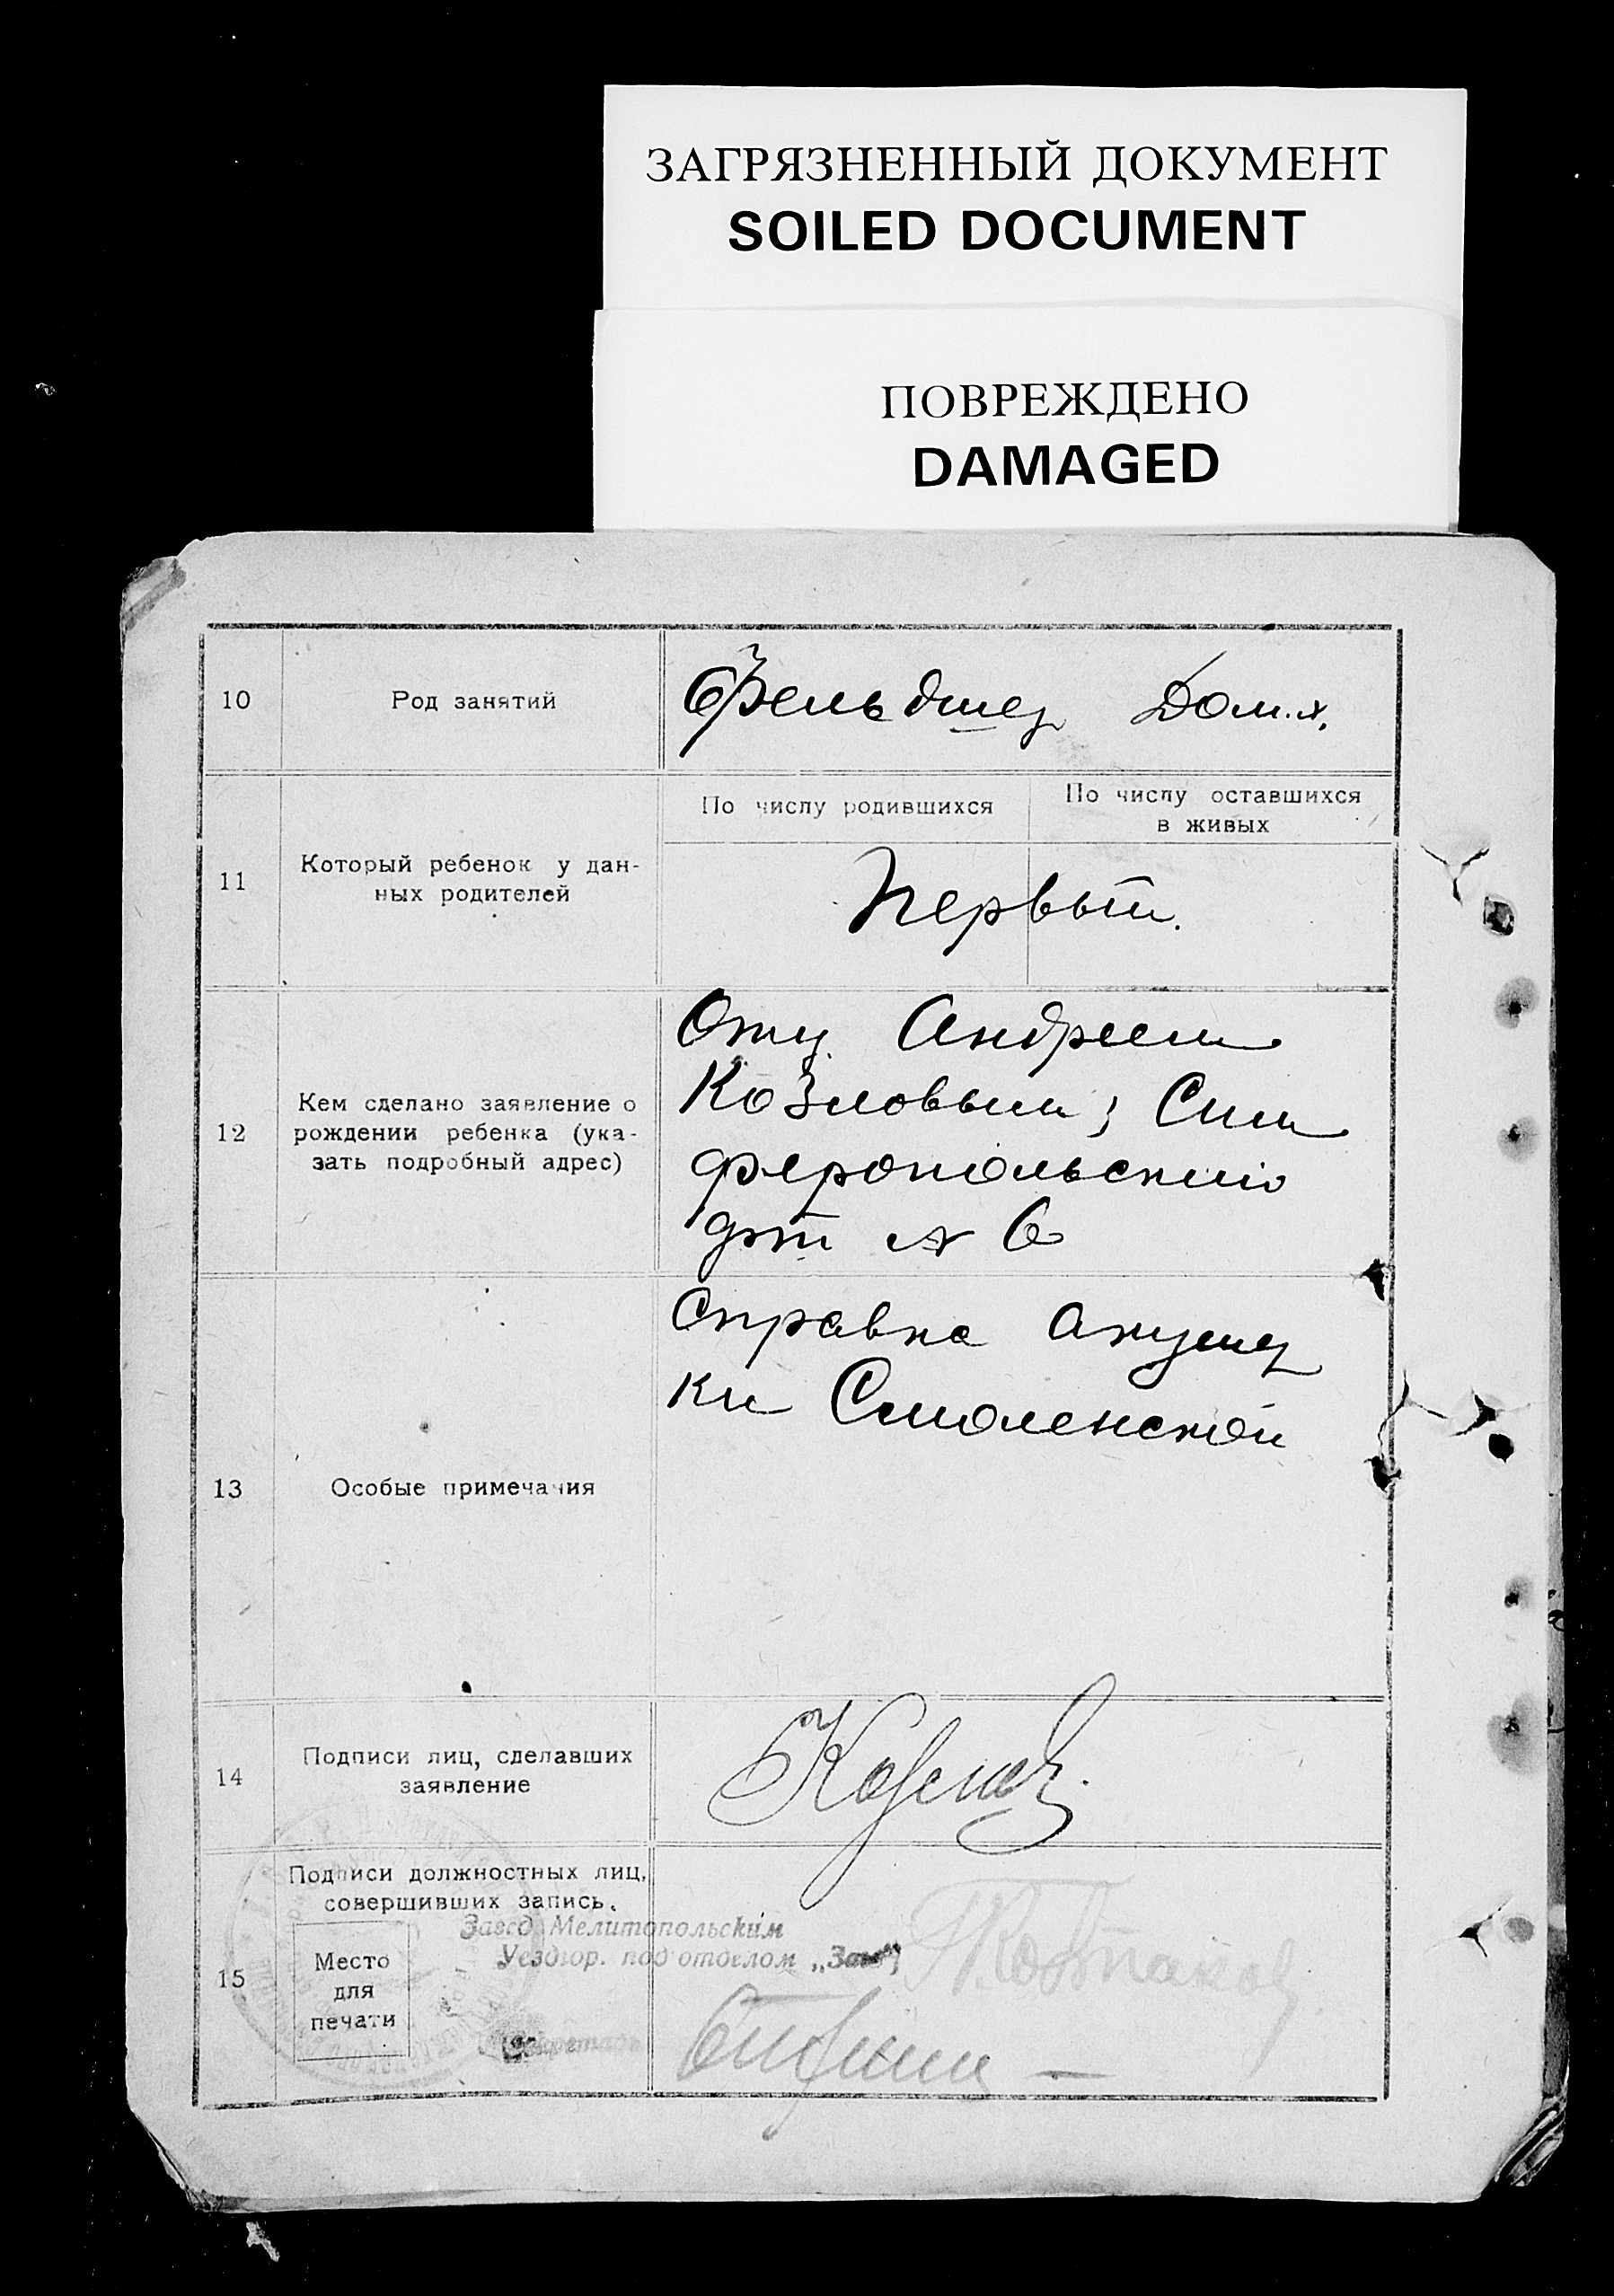 ЗАГРЯЗНЕННЫЙ ДОКУМЕНТ
SOILED DOCUMENT
ПОВРЕЖДЕНО
DAMAGED
10
Род занятий
Фельдшер Дом.х.
11
Который ребенок у дан-
ных родителей
По числу родившихся
По числу оставшихся
в живых
Первый.
12
Кем сделано заявление о
рождении ребенка (ука-
зать подробный адрес)
Андреем
Козловым; Сим
феропольский
№ 6
13
Особые примечания
Справка акушер
ки Смоленской
14
Подписи лиц, сделавших
заявление
Козлов.
15
Подписи должностных лиц,
совершивших запись.
Место
для
печати
Завед. Мелитопольским
Уездгор. под'отделом „Загс"
Секретарь